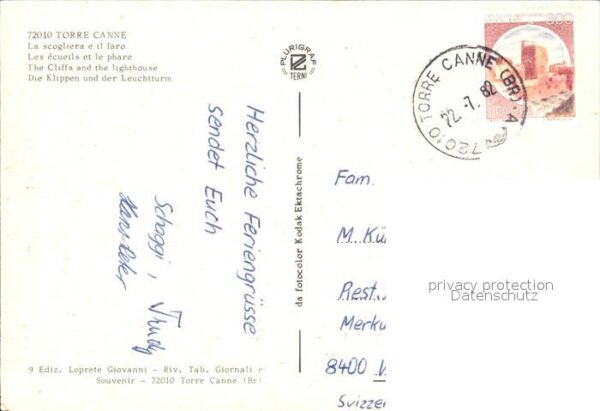 72010 TORRE CANNE
La scogliera e il faro
Les écueils et le phare
The Cliffs and the lighthouse
Die Klippen und der Leuchtturm
PLURIGRAF
TERNI
300
72010 TORRE CANNE (BR) A
22.7.82
Herzliche Feriengrüsse
sendet Euch
Schaggi, Trudy
da fotocolor Kodak Ektachrome
Fam.
M. Kü
Rest.
Merku
8400
Svizze
privacy protection
Datenschutz
9 Ediz. Loprete Giovanni - Riv. Tab. Giornali e
Souvenir - 72010 Torre Canne (Br)